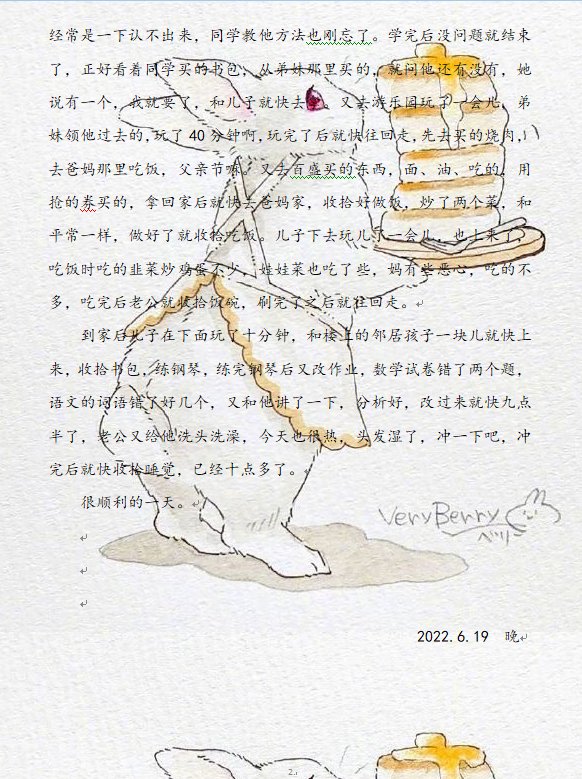 经常是一下认不出来，同学教他方法也刚忘了。学完后没问题就结束
了，正好看着同学买的书包，从弟妹那里买的，就问他还有没有，她
说有一个，我就要了，和儿子就快去。又去游乐园玩了一会儿，弟
妹领他过去的,玩了 40 分钟啊,玩完了后就快往回走,先去买的烧肉,
去爸妈那里吃饭，父亲节嘛。又去百盛买的东西，面、油、吃的，用
抢的券买的，拿回家后就快去爸妈家，收拾好做饭，炒了两个菜，和
平常一样，做好了就收拾吃饭。儿子下去玩儿了一会儿，也上来了，
吃饭时吃的韭菜炒鸡蛋不少，娃娃菜也吃了些，妈有些恶心，吃的不
多，吃完后老公就收拾饭碗，刷完了之后就往回走。
到家后儿子在下面玩了十分钟，和楼上的邻居孩子一块儿就快上
来，收拾书包，练钢琴，练完钢琴后又改作业，数学试卷错了两个题，
语文的词语错了好几个，又和他讲了一下，分析好，改过来就快九点
半了，老公又给他洗头洗澡，今天也很热，头发湿了，冲一下吧，冲
完后就快收拾睡觉，已经十点多了。
很顺利的一天。
VeryBerry
べり
2022.6.19 晚
2